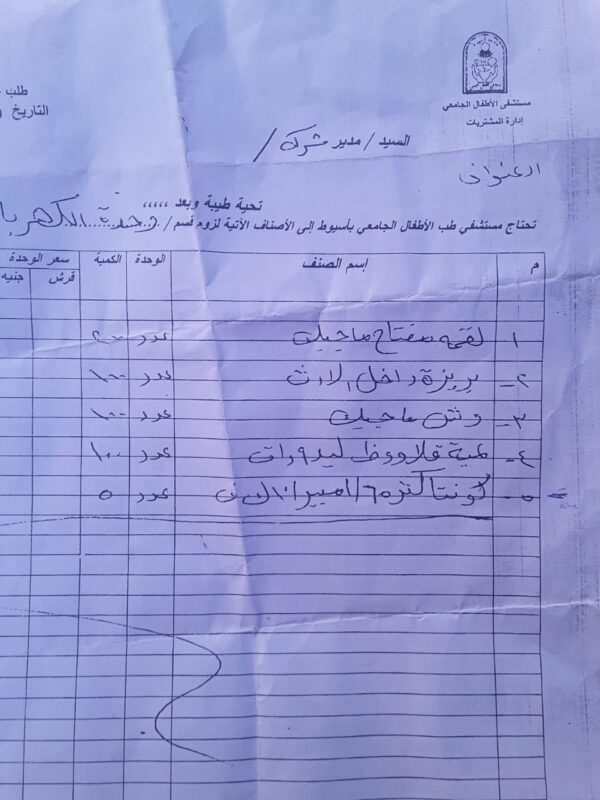 مستشفى الأطفال الجامعي
إدارة المشتريات
طلب
التاريخ
السيد / مدير شركة /
العنوان
تحية طيبة وبعد ،،،،،
تحتاج مستشفي طب الأطفال الجامعي بأسيوط إلى الأصناف الآتية لزوم قسم / وحدة الكهربا
م إسم الصنف الوحدة الكمية سعر الوحدة
قرش جنيه
١ لقمه مفتاح ماجيك عدد ٢٠٠
٢- بريزة داخل عدد ١٠٠
٣- وش ماجيك عدد ١٠٠
٤- لمبة قلاووظ ليد ٩ وات عدد ١٠٠
٥- كونتاكتر ٦٥ امبير عدد ٥